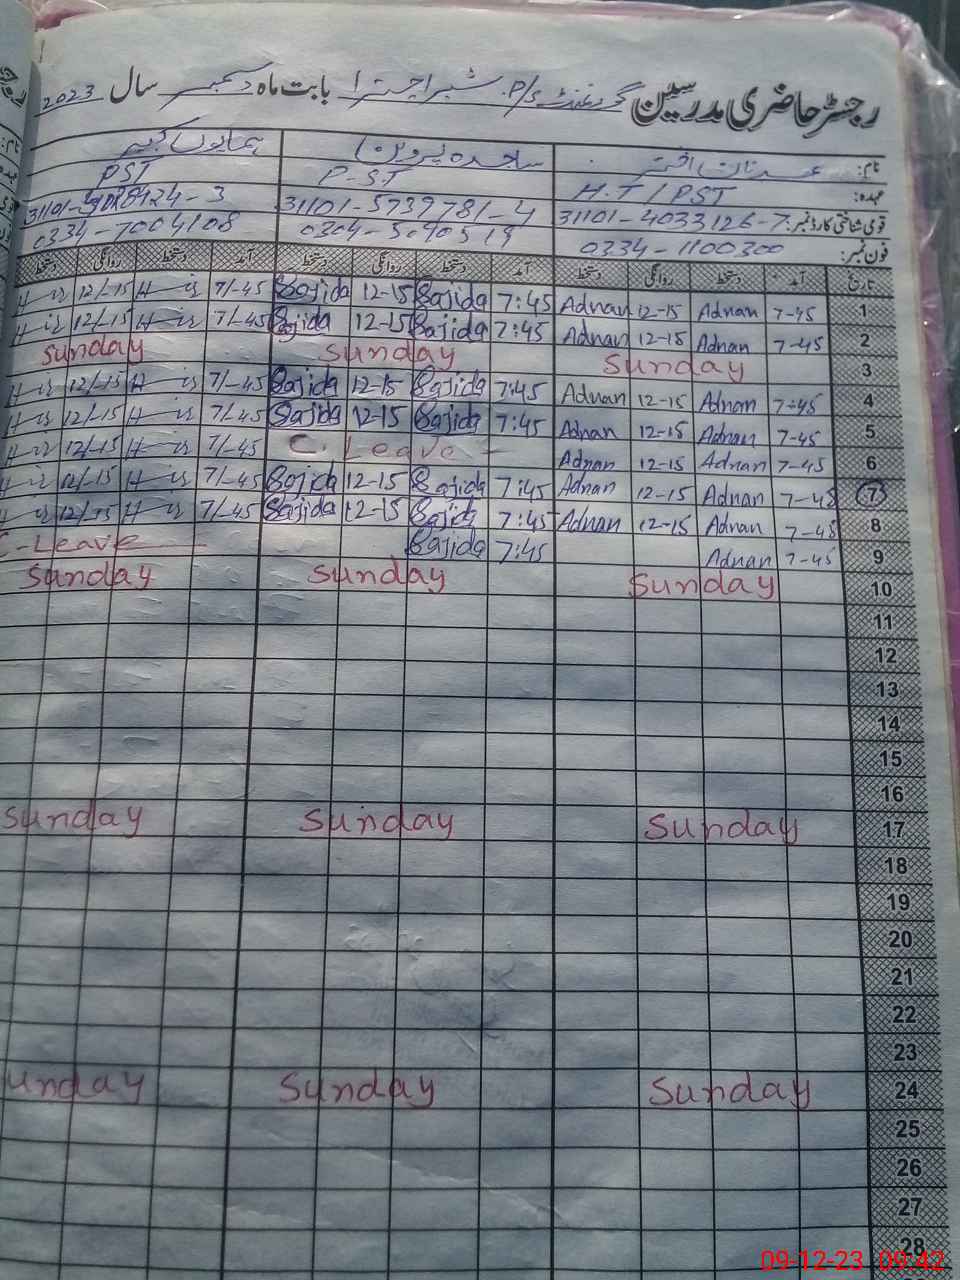 رجسٹر حاضری مدرسین گورنمنٹ P/S بابت ماہ دسمبر سال 2023
نام: عدنان اختر ساجدہ پروین ہمایوں کبیر
عہدہ: H.T / PST P.S.T PST
قومی شناختی کارڈ نمبر: 31101-4033126-7 31101-5739781-4
فون نمبر: 0334-1100300 0334-7004108
تاریخ آمد دستخط روانگی دستخط آمد دستخط روانگی دستخط آمد دستخط روانگی دستخط
1 7-45 Adnan 12-15 Adnan 7:45 Sajida 12-15 Sajida 7/-45 12/-15
2 7-45 Adnan 12-15 Adnan 7:45 Sajida 12-15 Sajida 7/-45 12/-15
3 Sunday Sunday Sunday
4 7-45 Adnan 12-15 Adnan 7:45 Sajida 12-15 Sajida 7/-45 12/-15
5 7-45 Adnan 12-15 Adnan 7:45 Sajida 12-15 Sajida 7/-45 12/-15
6 7-45 Adnan 12-15 Adnan C. Leave - 7/-45 12/-15
7 7-45 Adnan 12-15 Adnan 7:45 Sajida 12-15 Sajida 7/-45 12/-15
8 7-45 Adnan 12-15 Adnan 7:45 Sajida 12-15 Sajida 7/-45 12/-15
9 7-45 Adnan 7:45 Sajida C-Leave
10 Sunday Sunday Sunday
11
12
13
14
15
16
17 Sunday Sunday Sunday
18
19
20
21
22
23
24 Sunday Sunday unday
25
26
27
28
09-12-23 09:42